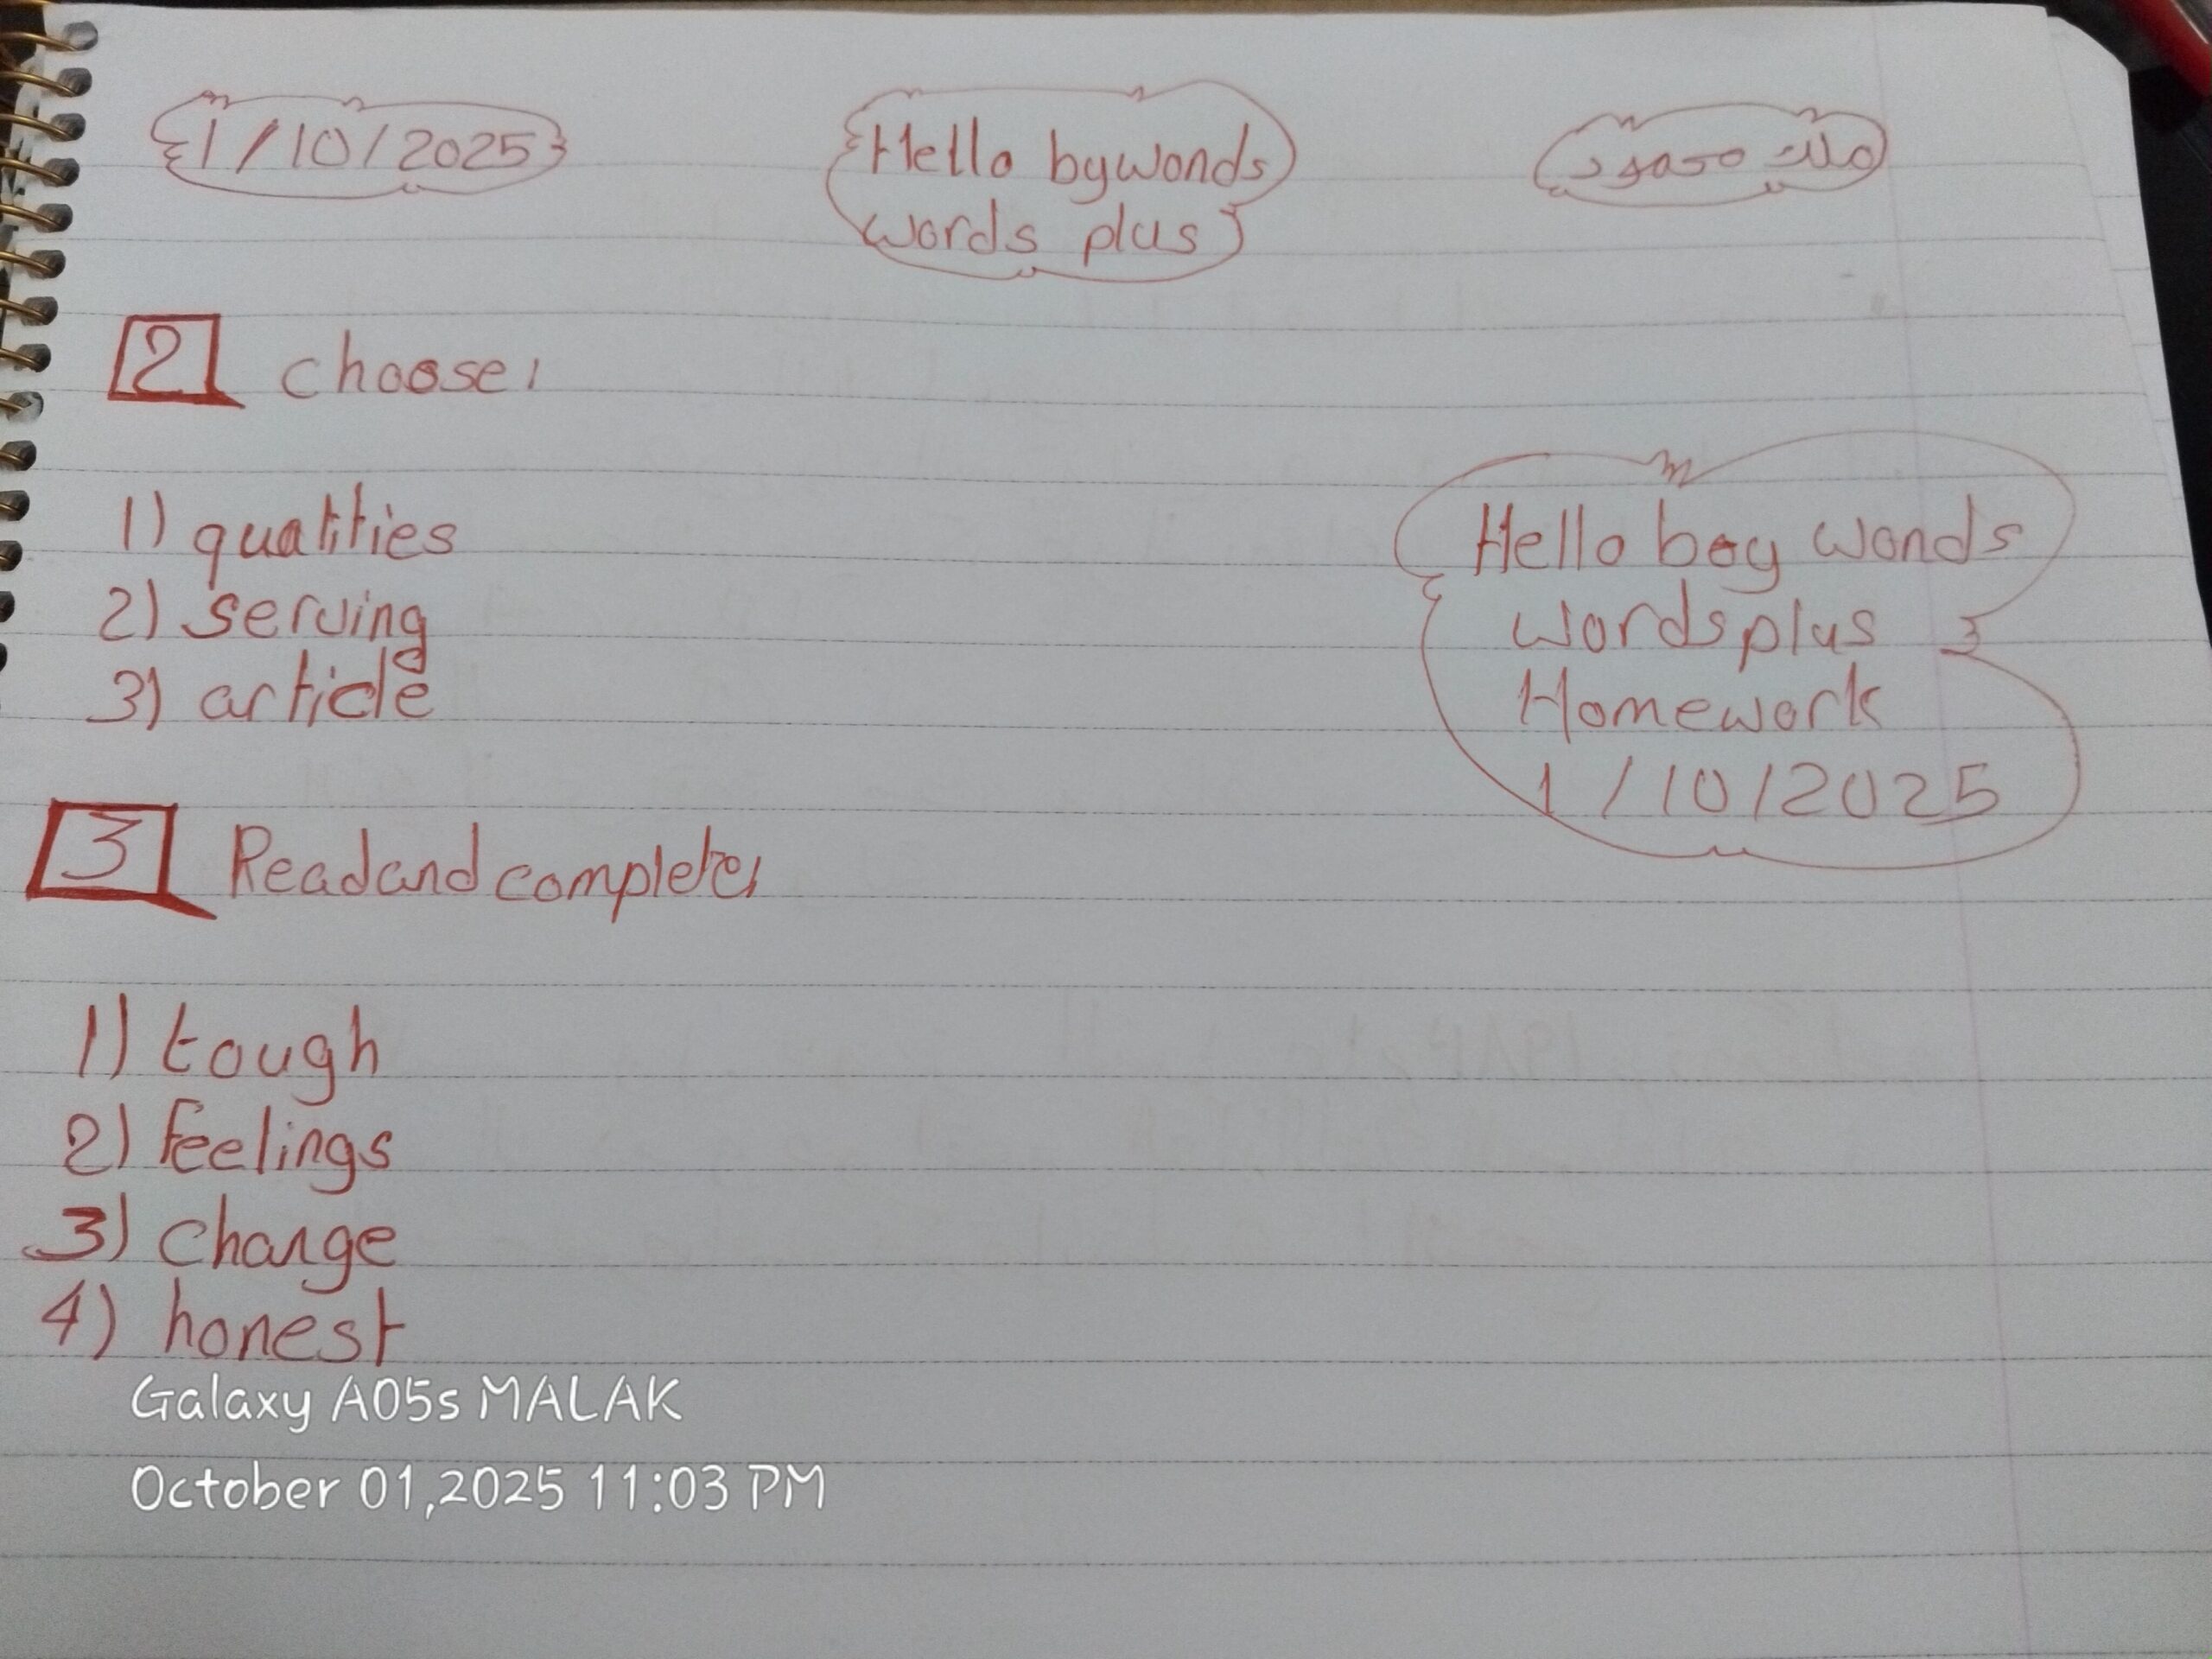 1/10/2025
Hello bywonds
words plus
ملك محمود
2 choose:
1) qualities
2) serving
3) article
Hello boy wonds
words plus
Homework
1/10/2025
3 Read and complete:
1) tough
2) feelings
3) change
4) honest
Galaxy A05s MALAK
October 01,2025 11:03 PM